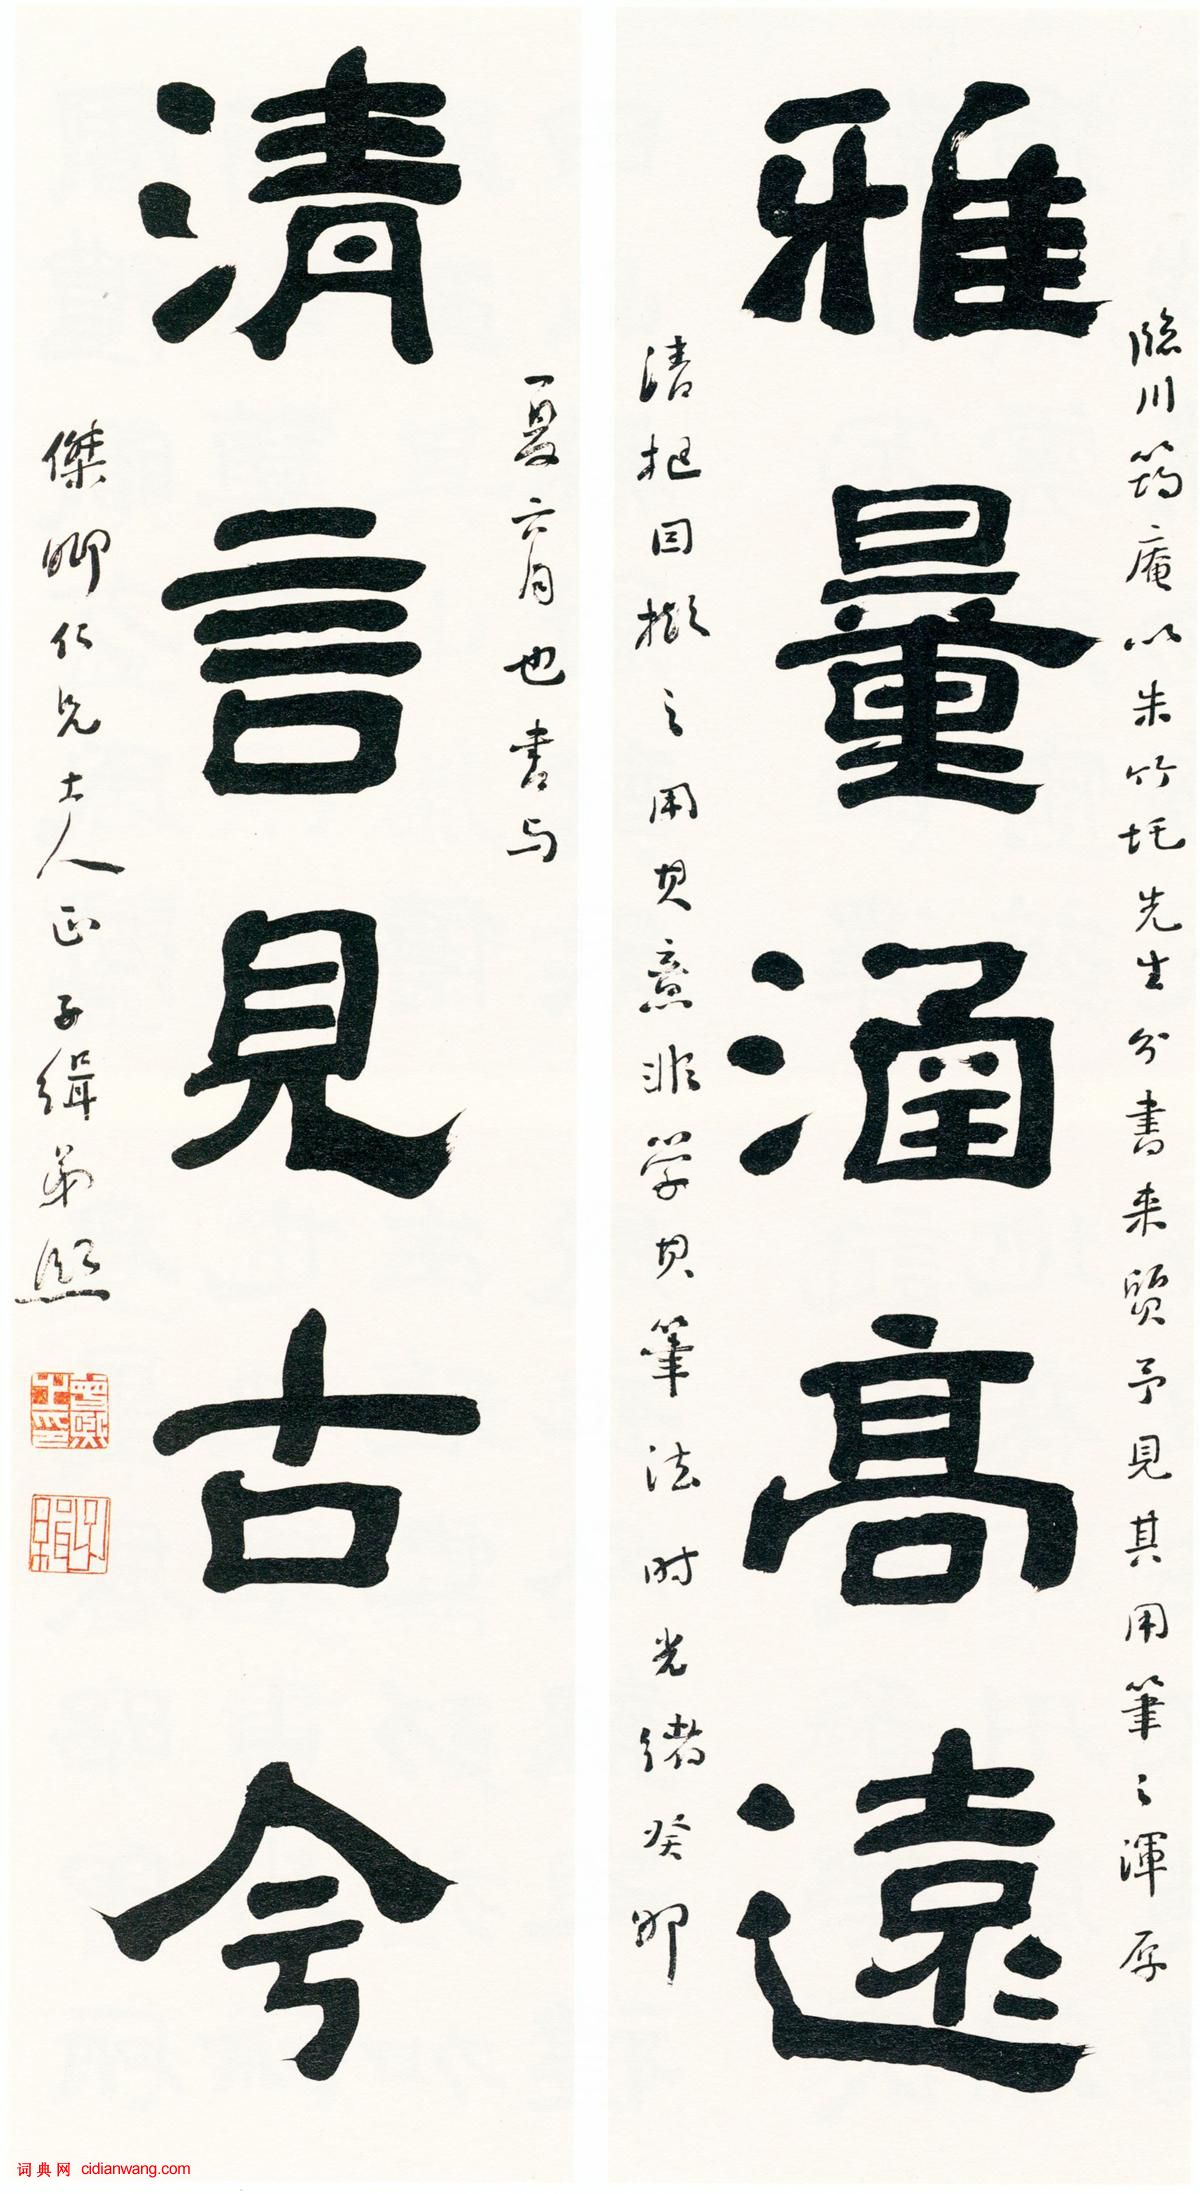 雅量涵高遠
臨川筠庵以朱竹垞先生分書來質予見其用筆之渾厚
清挹因擬之用其意非学其筆法时光緒癸卯
清言見古今
夏六月也書与
傑卿仁兄大人正 子緝弟熙
词典网 cidianwang.com